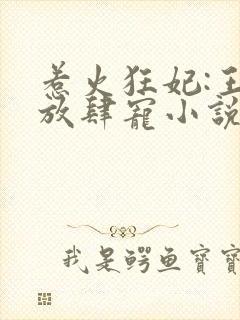 惹火狂妃:王
放肆寵小說
我是鳄鱼寶寶